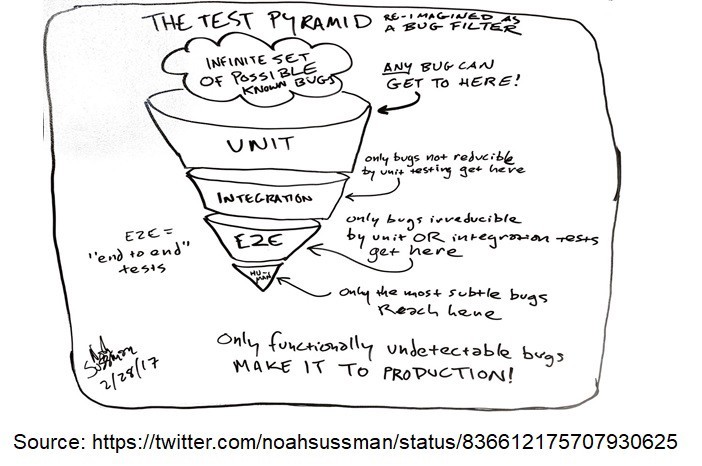 THE TEST PYRAMID RE-IMAGINED AS
A BUG FILTER
INFINITE SET
OF POSSIBLE
KNOWN BUGS
ANY BUG CAN
GET TO HERE!
UNIT
only bugs not reducible
by unit testing get here
INTEGRATION
only bugs irreducible
by unit OR integration tests
get here
E2E
E2E =
"end to end"
tests
HU-
MAN
only the most subtle bugs
Reach here
Only functionally undetectable bugs
MAKE IT TO PRODUCTION!
Noah
Sussman
2/28/17
Source: https://twitter.com/noahsussman/status/836612175707930625